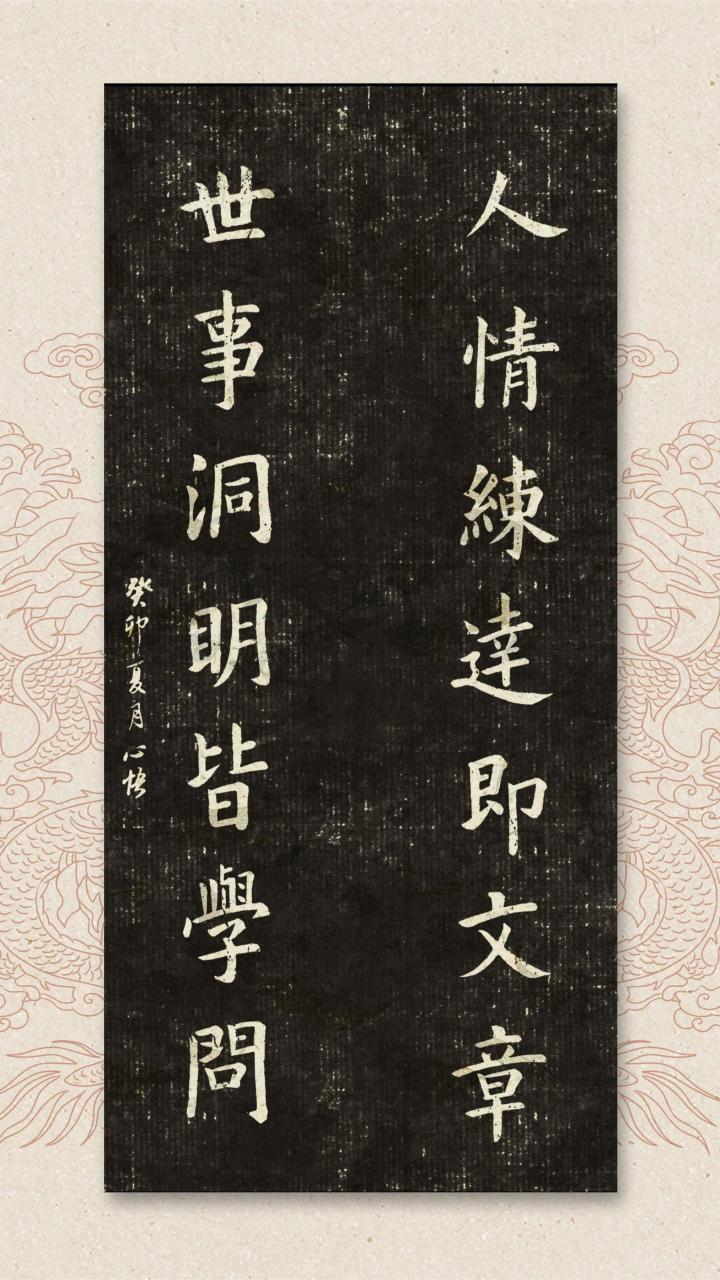 人情練達即文章
世事洞明皆學問
癸卯夏月心悟